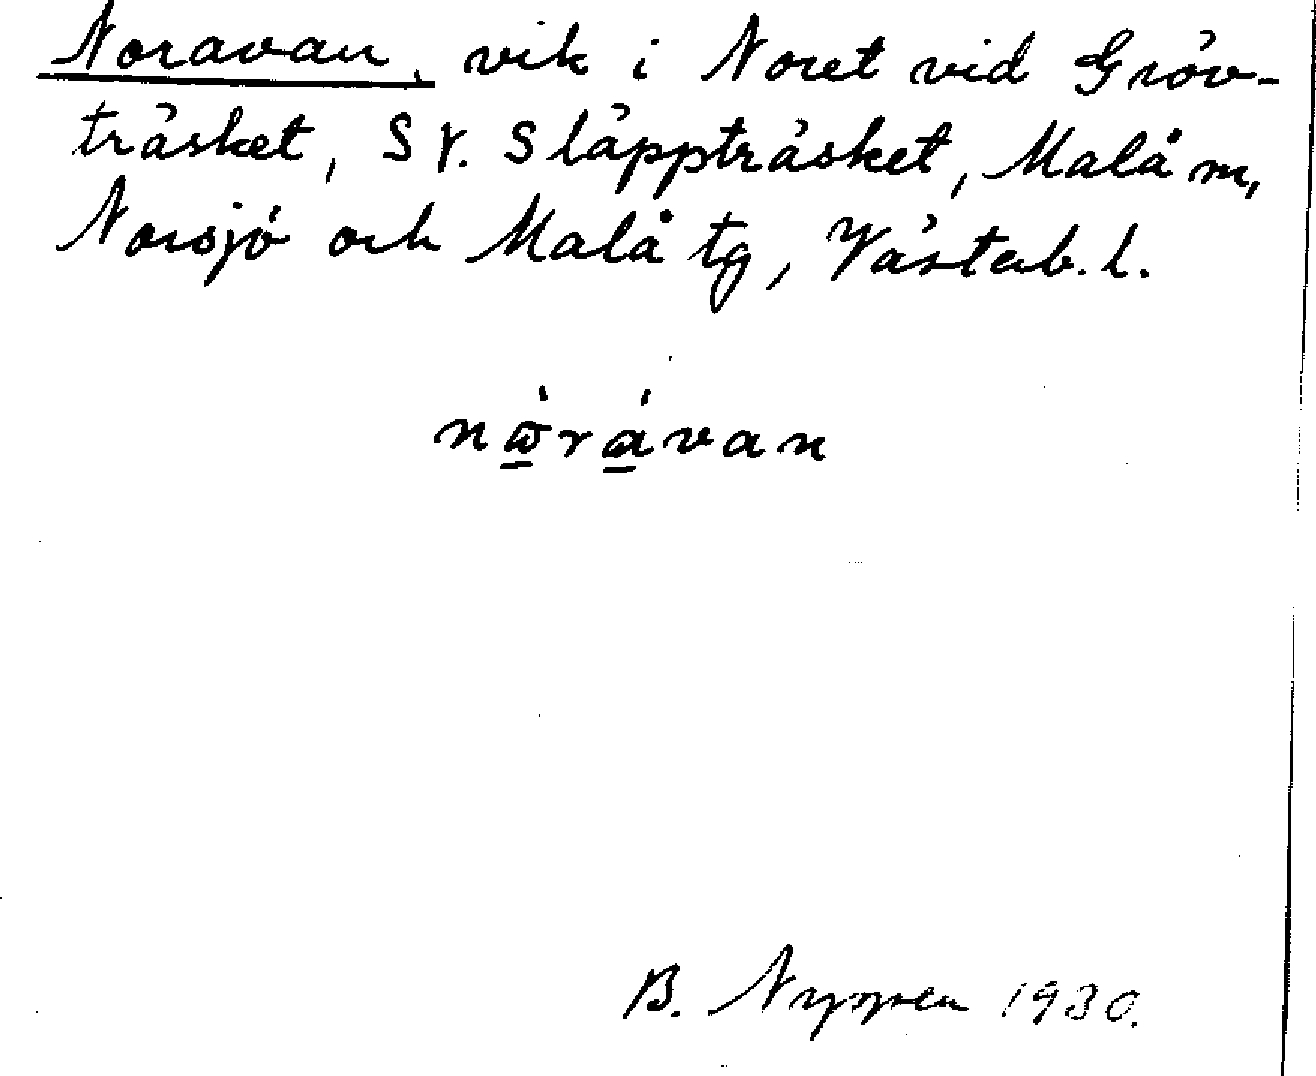 Noravan, vik i Noret vid Gröv-
träsket, S V. Släppträsket, Malå m,
Norsjö och Malå tg, Västerb. l.
B. Nyman 1930.